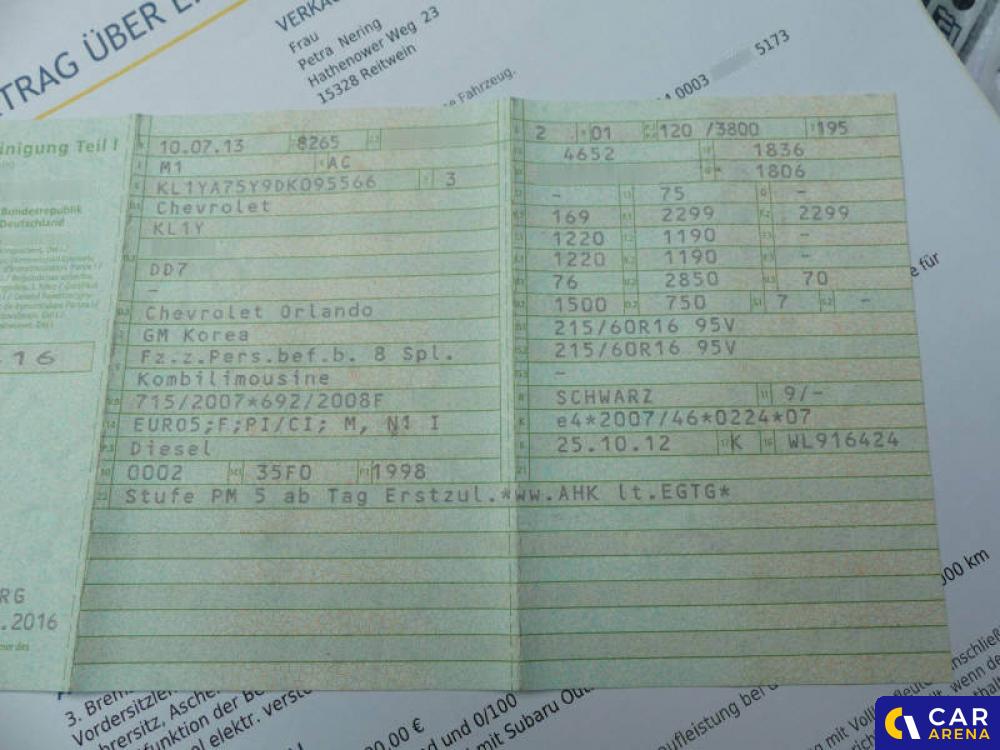 TRAG ÜBER EI
VERKA
Frau
Petra Nering
Hathenower Weg 23
15328 Reitwein
e Fahrzeug.
0003 5173
inigung Teil I
Bundesrepublik
Deutschland
16
RG
.2016
10.07.13 8265
M1 AC
KL1YA75Y9DK095566 3
Chevrolet
KL1Y
DD7
–
Chevrolet Orlando
GM Korea
Fz.z.Pers.bef.b. 8 Spl.
Kombilimousine
715/2007*692/2008F
EURO5;F;PI/CI; M, N1 I
Diesel
0002 35F0 1998
Stufe PM 5 ab Tag Erstzul.*ww.AHK lt.EGTG*
2 01 120 /3800 195
4652 1836
1806
– 75 –
169 2299 2299
1220 1190 –
1220 1190 –
76 2850 70
1500 750 7 –
215/60R16 95V
215/60R16 95V
–
SCHWARZ 9/–
e4*2007/46*0224*07
25.10.12 K WL916424
e für
000 km
3. Brem
Vordersitzle
hrersitz, Asche
funktion der Be
el elektr. verst
00,00 €
und 0/100
mit Subaru Out
ufleistung bei d
mit Voll
nschließ
wenn de
CAR
ARENA